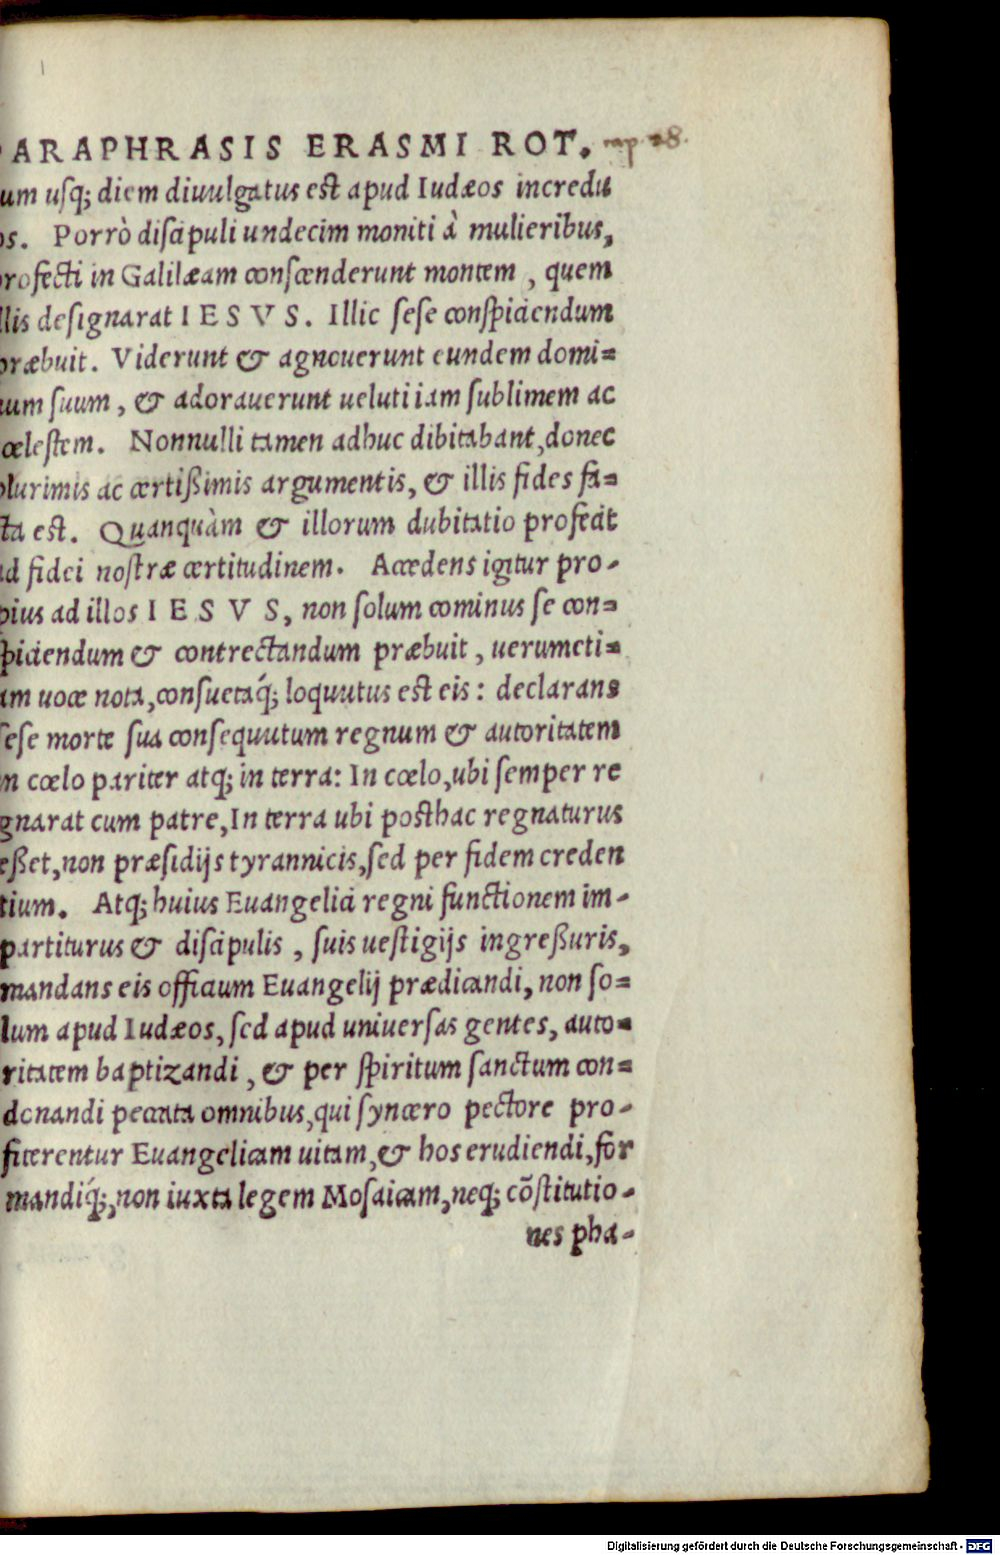 PARAPHRASIS ERASMI ROT. cap. 28.
um usq; diem diuulgatus est apud Iudæos incredu
os. Porrò discipuli undecim moniti à mulieribus,
rofecti in Galilæam conscenderunt montem, quem
llis designarat IESVS. Illic sese conspiciendum
præbuit. Viderunt & agnouerunt eundem domi=
num suum, & adorauerunt ueluti iam sublimem ac
cœlestem. Nonnulli tamen adhuc dibitabant, donec
plurimis ac certißimis argumentis, & illis fides fa=
cta est. Quanquàm & illorum dubitatio profecit
ad fidei nostræ certitudinem. Accedens igitur pro-
pius ad illos IESVS, non solum cominus se con=
spiciendum & contrectandum præbuit, uerumeti=
am uoce nota, consuetaq́; loquutus est eis: declarans
sese morte sua consequutum regnum & autoritatem
in cœlo pariter atq; in terra: In cœlo, ubi semper re
gnarat cum patre, In terra ubi posthac regnaturus
eßet, non præsidijs tyrannicis, sed per fidem creden
tium. Atq; huius Euangelici regni functionem im-
partiturus & discipulis, suis uestigijs ingreßuris,
mandans eis officium Euangelij prædicandi, non so=
lum apud Iudæos, sed apud uniuersas gentes, auto=
ritatem baptizandi, & per spiritum sanctum con=
donandi peccata omnibus, qui syncero pectore pro-
fiterentur Euangelicam uitam, & hos erudiendi, for
mandiq́;, non iuxta legem Mosaicam, neq; cōstitutio-
nes pha-
Digitalisierung gefördert durch die Deutsche Forschungsgemeinschaft - DFG